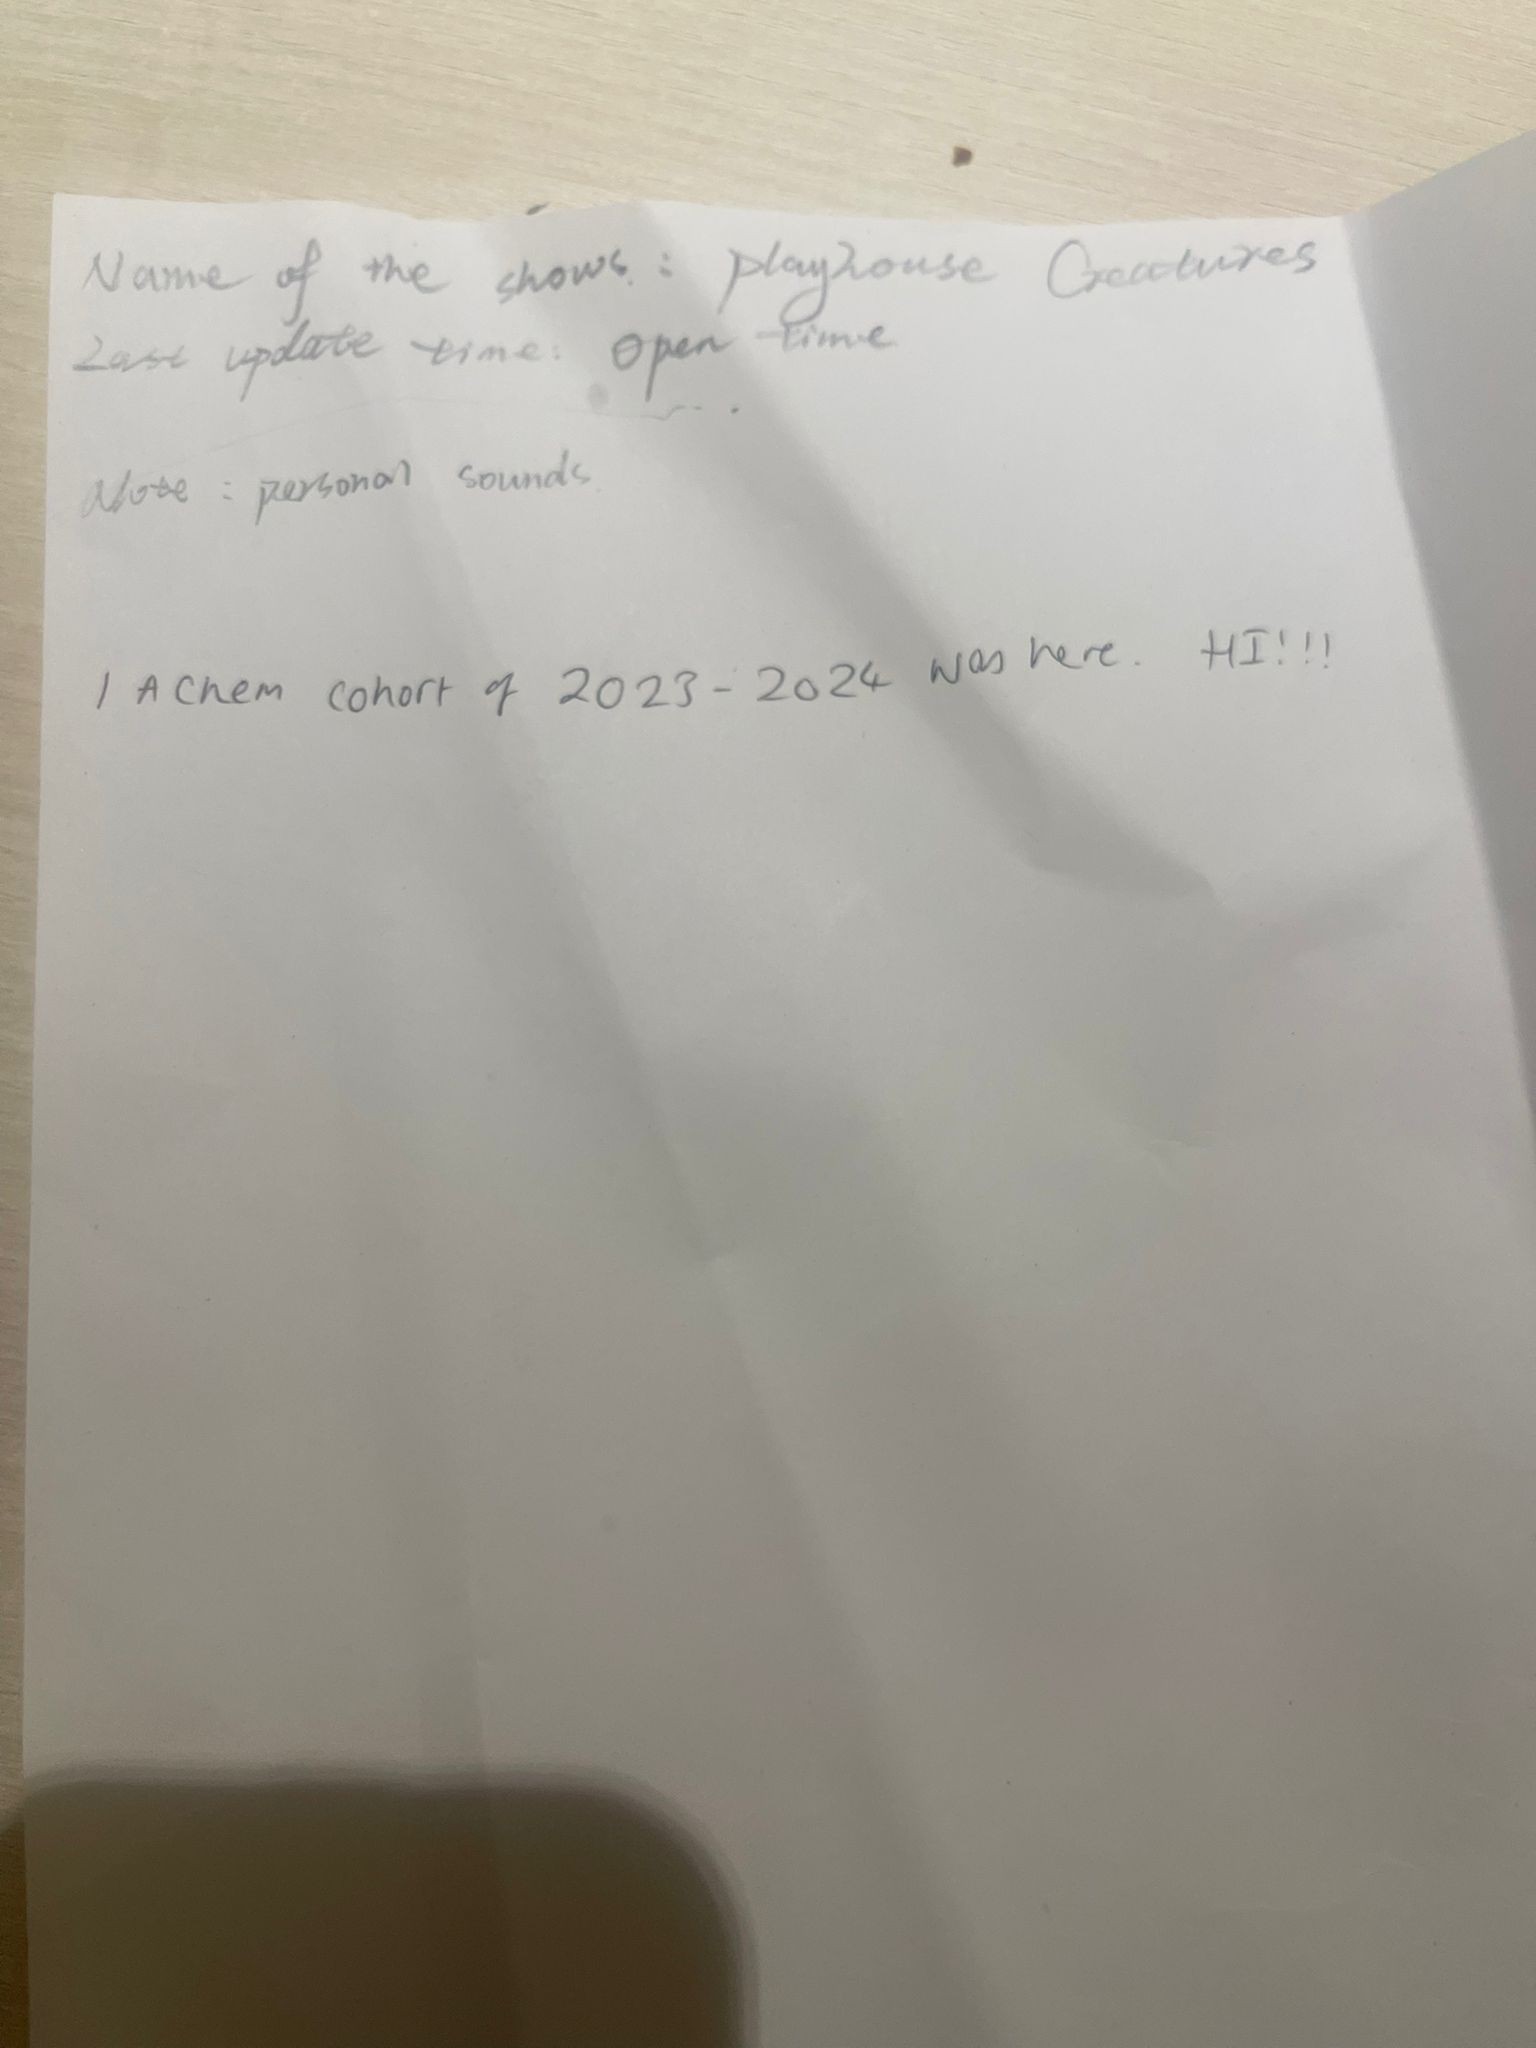 Name of the shows : playhouse Creatures
Last update time: Open time
Note : personal sounds
1 A Chem cohort of 2023-2024 was here. HI!!!